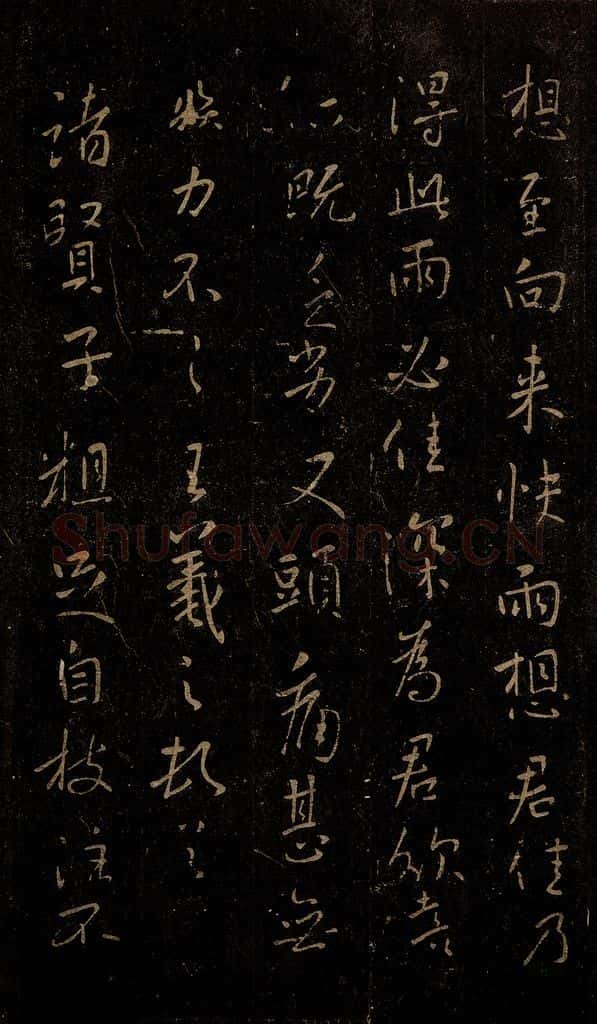 想至向来快雨想君佳乃
得此雨必佳深为君欣喜
仆既乏劣又頭痛甚无
賴力不一一王羲之頓首
諸賢子粗送自枝注不
Shufawang.CN